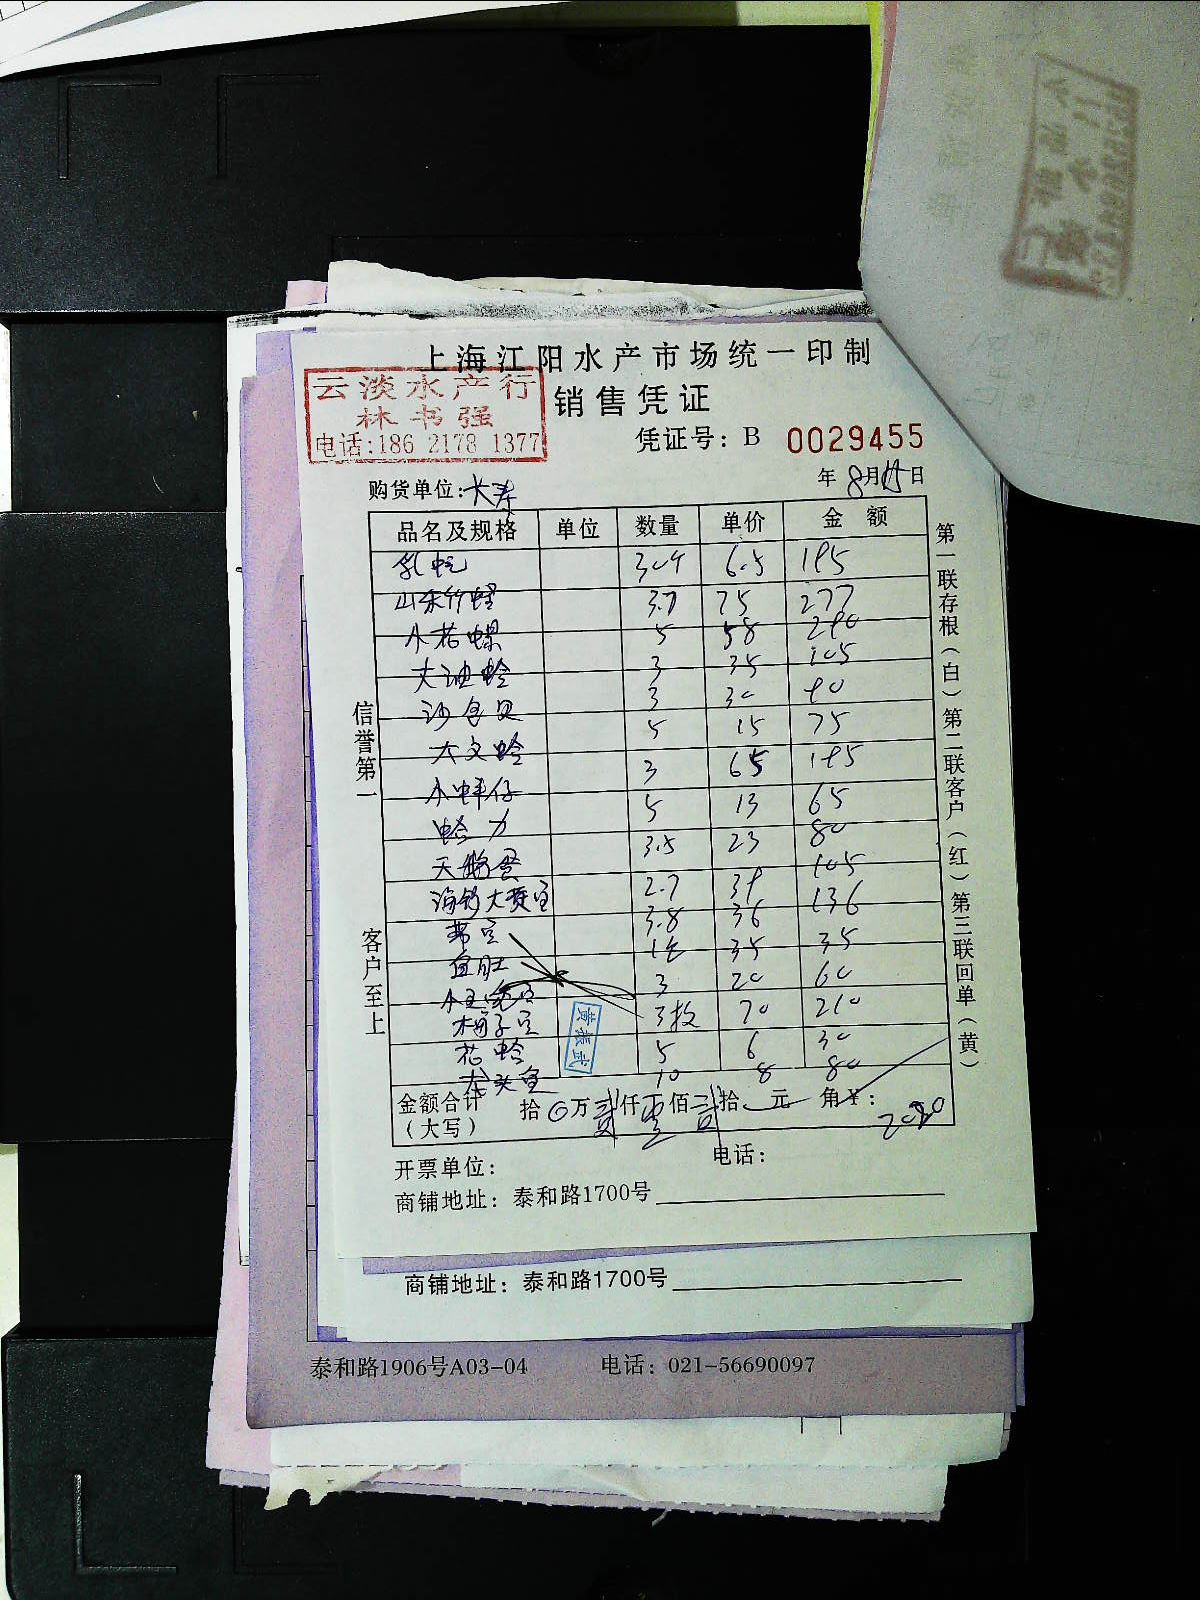 上海江阳水产市场统一印制
云淡水产行
林书强
电话:186 2178 1377
销售凭证
凭证号: B 0029455
年 8月15日
购货单位:长寿
品名及规格 单位 数量 单价 金额
乳蛇 304 6.5 195
山东竹蛏 3.7 75 277
小花螺 5 58 290
大油蛤 3 35 105
沙包贝 3 30 90
大文蛤 5 15 75
小蚌仔 3 65 195
蛤力 5 13 65
天鹅蛋 3.5 23 80
2.7 39 105
3.8 36 136
鱼肚 35 35
3 20 60
梅子 3枚 70 210
花蛤 5 6 30
10 8 80
黄表武
金额合计
(大写)
拾 万 仟 佰 拾 元 角 ¥:
开票单位: 电话:
商铺地址: 泰和路1700号
信誉第一
客户至上
第一联存根(白)第二联客户(红)第三联回单(黄)
商铺地址: 泰和路1700号
泰和路1906号A03-04 电话: 021-56690097